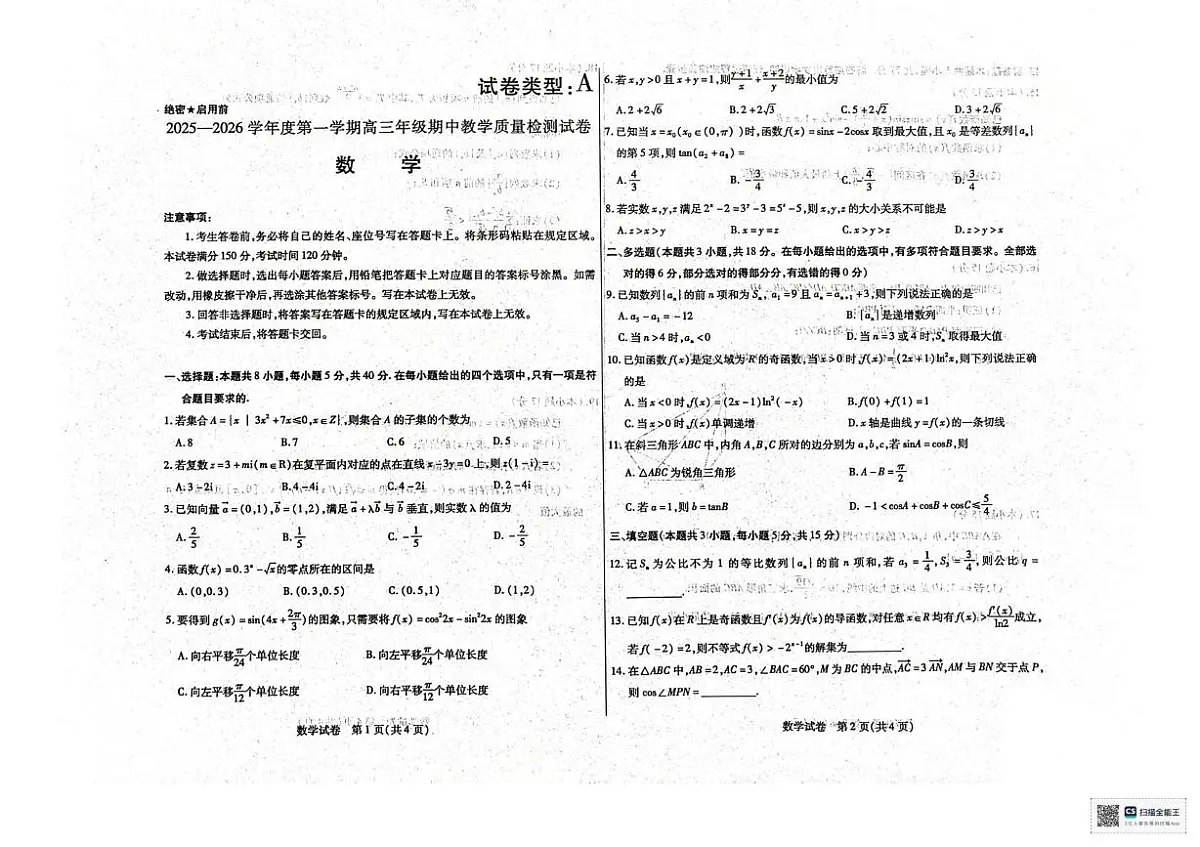 试卷类型:A
绝密★启用前
2025—2026 学年度第一学期高三年级期中教学质量检测试卷
数 学
注意事项:
1.考生答卷前,务必将自己的姓名、座位号写在答题卡上。将条形码粘贴在规定区域。
本试卷满分 150 分,考试时间 120 分钟。
2.做选择题时,选出每小题答案后,用铅笔把答题卡上对应题目的答案标号涂黑。如需
改动,用橡皮擦干净后,再选涂其他答案标号。写在本试卷上无效。
3.回答非选择题时,将答案写在答题卡的规定区域内,写在本试卷上无效。
4.考试结束后,将答题卡交回。
一、选择题:本题共 8 小题,每小题 5 分,共 40 分.在每小题给出的四个选项中,只有一项是符
合题目要求的.
1.若集合 A={x | 3x²+7x≤0,x∈Z},则集合 A 的子集的个数为
A.8 B.7 C.6 D.5
2.若复数 z=3+mi(m∈R)在复平面内对应的点在直线 x-3y=0 上,则 z(1-i)=
A.3-2i B.4-4i C.4-2i D.2-4i
3.已知向量 a=(0,1),b=(1,2),满足 a+λb 与 b 垂直,则实数 λ 的值为
A.2/5 B.1/5 C.-1/5 D.-2/5
4.函数 f(x)=0.3ˣ-√x的零点所在的区间是
A.(0,0.3) B.(0.3,0.5) C.(0.5,1) D.(1,2)
5.要得到 g(x)=sin(4x+2π/3)的图象,只需要将 f(x)=cos²2x-sin²2x 的图象
A.向右平移π/24个单位长度 B.向左平移π/24个单位长度
C.向左平移π/12个单位长度 D.向右平移π/12个单位长度
数学试卷 第 1 页(共 4 页)
6.若 x,y>0 且 x+y=1,则(y+1)/x+(x+2)/y的最小值为
A.2+2√6 B.2+2√3 C.5+2√2 D.3+2√6
7.已知当 x=x₀(x₀∈(0,π))时,函数 f(x)=sinx-2cosx 取到最大值,且 x₀ 是等差数列{aₙ}
的第 5 项,则 tan(a₂+a₈)=
A.4/3 B.-3/4 C.-4/3 D.3/4
8.若实数 x,y,z 满足 2ˣ-2=3ʸ-3=5ᶻ-5,则 x,y,z 的大小关系不可能是
A.z>x>y B.x=y=z C.x>y>z D.z>y>x
二、多选题(本题共 3 小题,共 18 分。在每小题给出的选项中,有多项符合题目要求。全部选
对的得 6 分,部分选对的得部分分,有选错的得 0 分)
9.已知数列{aₙ}的前 n 项和为 Sₙ,a₁=9 且 aₙ=aₙ₊₁+3,则下列说法正确的是
A.a₅-a₁=-12 B.{aₙ}是递增数列
C.当 n>4 时,aₙ<0 D.当 n=3 或 4 时,Sₙ 取得最大值
10.已知函数 f(x)是定义域为 R 的奇函数,当 x>0 时,f(x)=(2x+1)ln²x,则下列说法正确
的是
A.当 x<0 时,f(x)=(2x-1)ln²(-x) B.f(0)+f(1)=1
C.当 x>0 时,f(x)单调递增 D.x 轴是曲线 y=f(x)的一条切线
11.在斜三角形 ABC 中,内角 A,B,C 所对的边分别为 a,b,c,若 sinA=cosB,则
A.△ABC 为锐角三角形 B.A-B=π/2
C.若 a=1,则 b=tanB D.-1<cosA+cosB+cosC≤5/4
三、填空题(本题共 3 小题,每小题 5 分,共 15 分)
12.记 Sₙ 为公比不为 1 的等比数列{aₙ}的前 n 项和,若 a₃=1/4,S₃=3/4,则公比 q=
________.
13.已知 f(x)在 R 上是奇函数且 f′(x)为 f(x)的导函数,对任意 x∈R 均有 f(x)>f′(x)/ln2成立,
若 f(-2)=2,则不等式 f(x)>-2ˣ⁻¹的解集为________.
14.在△ABC 中,AB=2,AC=3,∠BAC=60°,M 为 BC 的中点,AC=3AN,AM 与 BN 交于点 P,
则 cos∠MPN=________.
数学试卷 第 2 页(共 4 页)
CS 扫描全能王